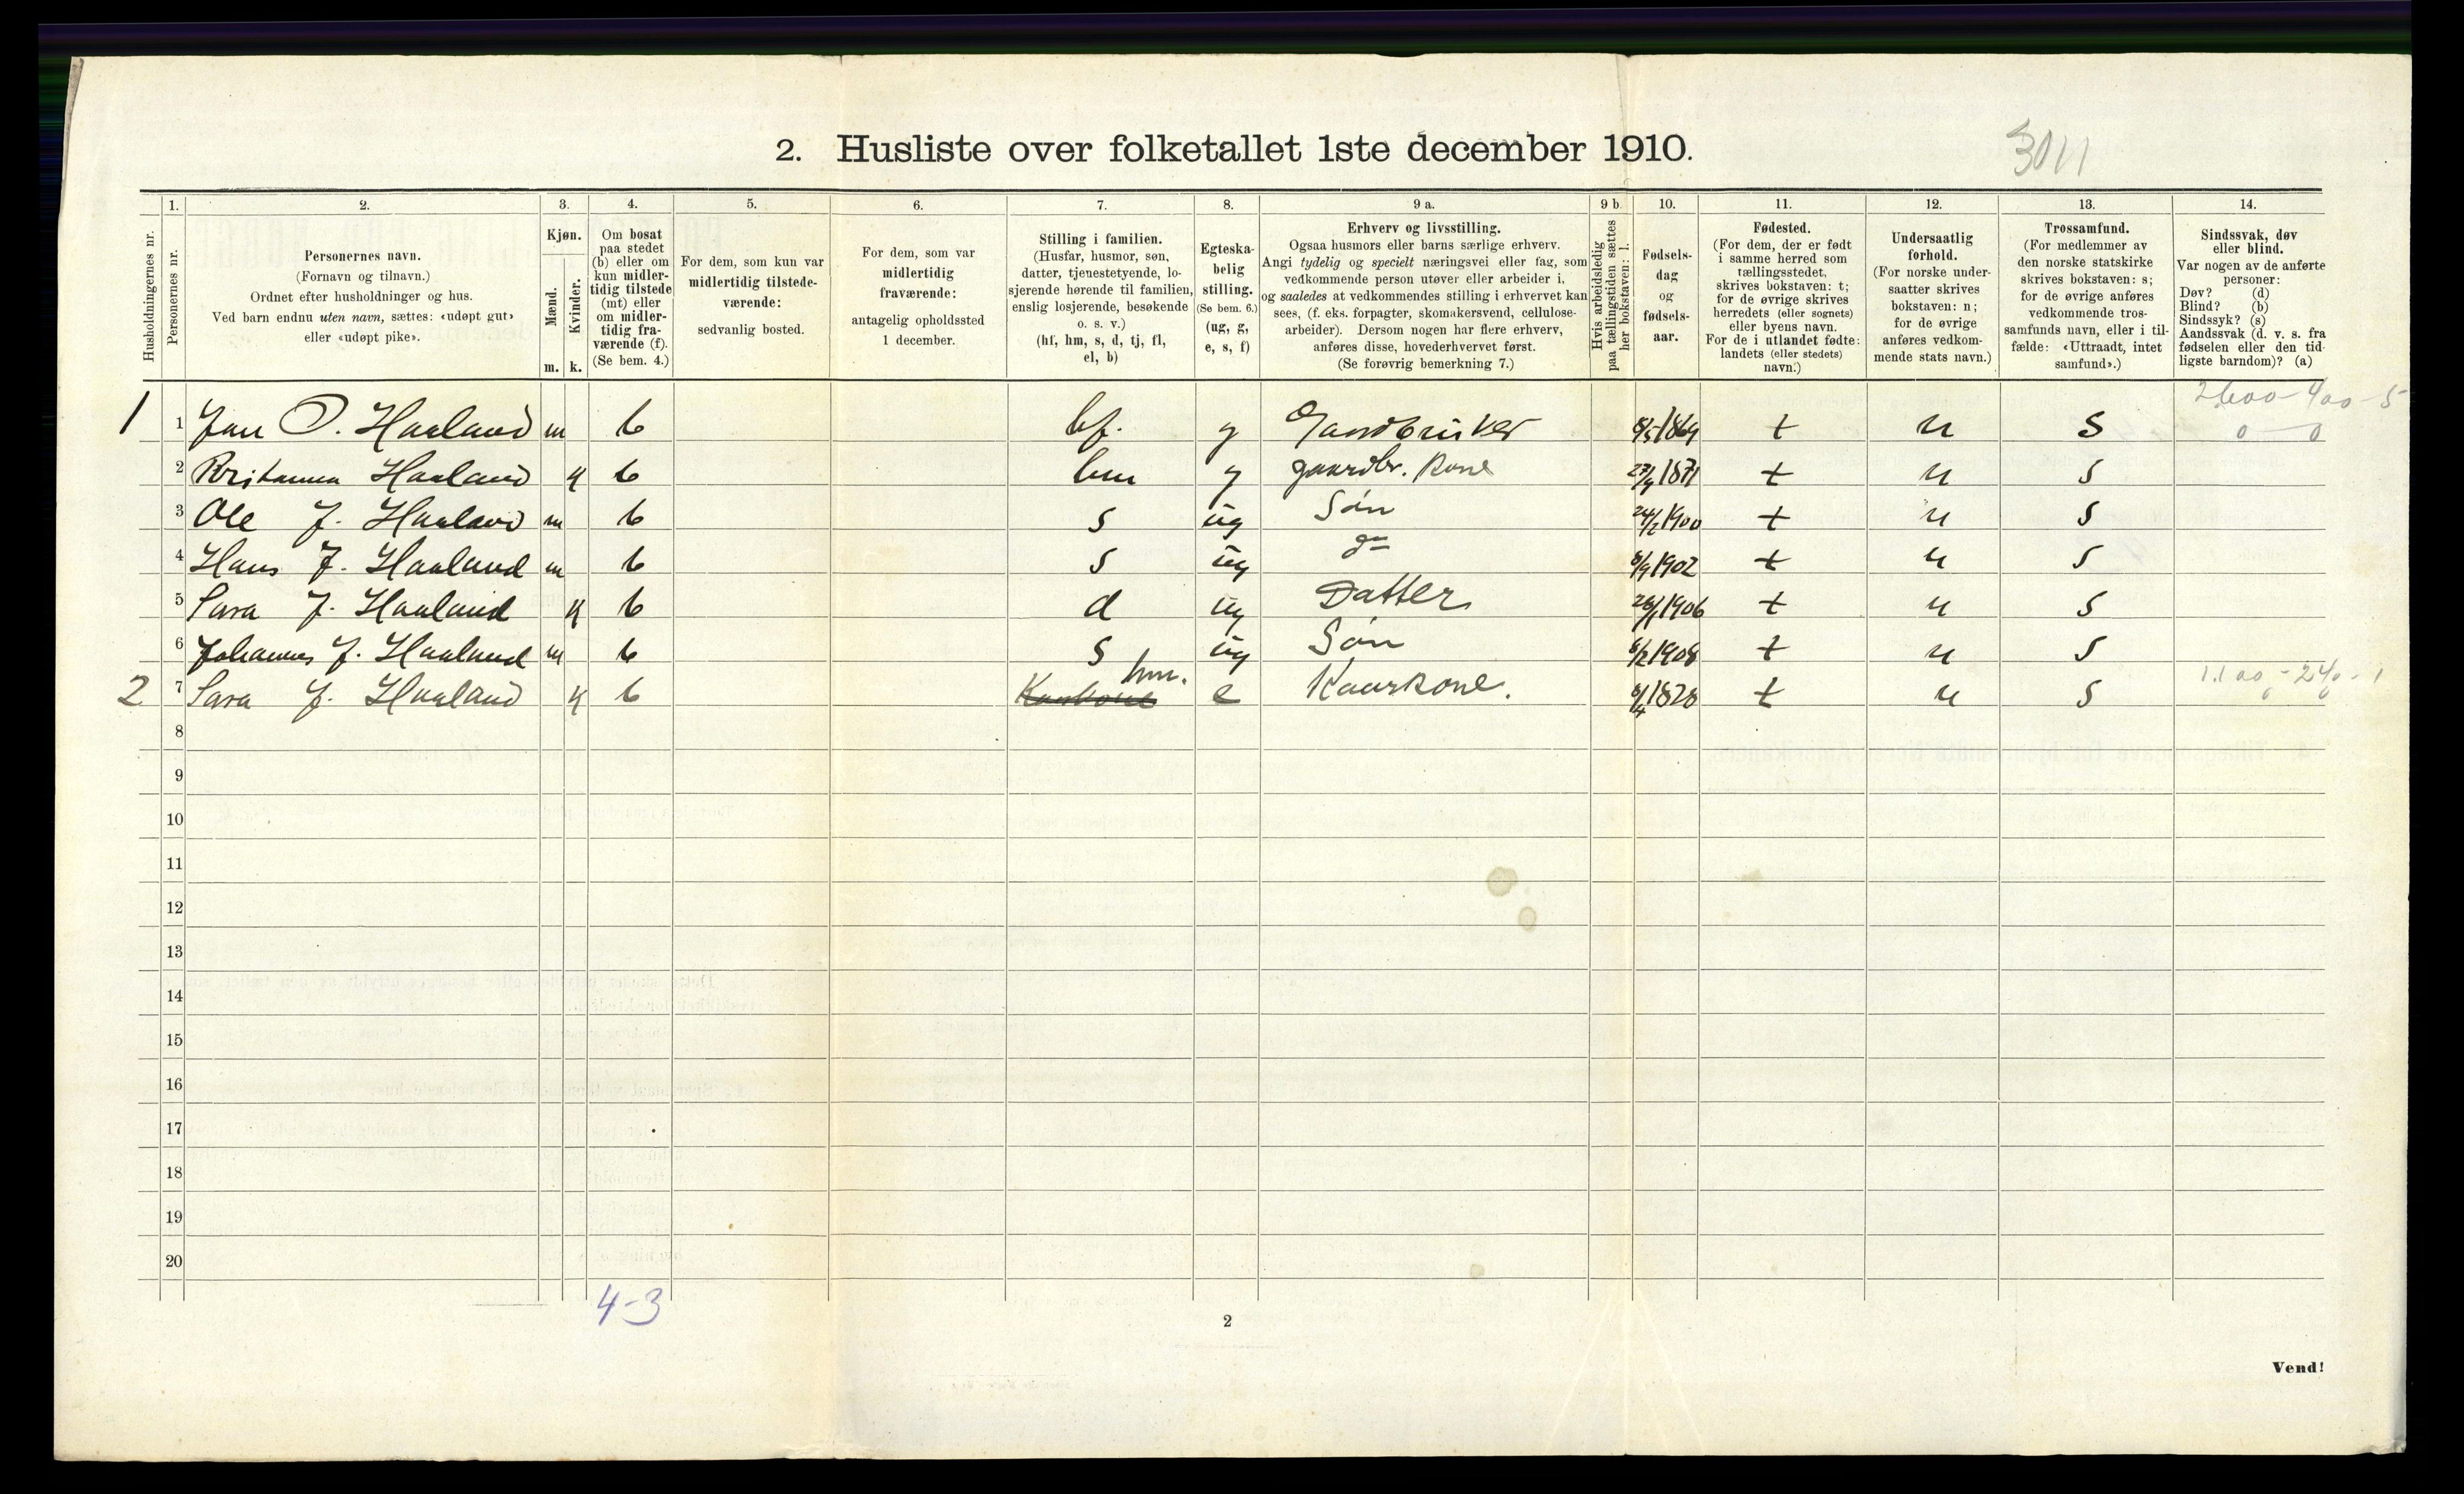 2. Husliste over folketallet 1ste december 1910.
3011
Husholdningernes nr.
1. Personernes nr.
2. Personernes navn.
(Fornavn og tilnavn.)
Ordnet efter husholdninger og hus.
Ved barn endnu uten navn, sættes: «udøpt gut»
eller «udøpt pike».
3. Kjøn.
Mænd. m.
Kvinder. k.
4. Om bosat
paa stedet
(b) eller om
kun midler-
tidig tilstede
(mt) eller
om midler-
tidig fra-
værende (f).
(Se bem. 4.)
5. For dem, som kun var
midlertidig tilstede-
værende:
sedvanlig bosted.
6. For dem, som var
midlertidig
fraværende:
antagelig opholdssted
1 december.
7. Stilling i familien.
(Husfar, husmor, søn,
datter, tjenestetyende, lo-
sjerende hørende til familien,
enslig losjerende, besøkende
o. s. v.)
(hf, hm, s, d, tj, fl,
el, b)
8. Egteska-
belig
stilling.
(Se bem. 6.)
(ug, g,
e, s, f)
9 a. Erhverv og livsstilling.
Ogsaa husmors eller barns særlige erhverv.
Angi tydelig og specielt næringsvei eller fag, som
vedkommende person utøver eller arbeider i,
og saaledes at vedkommendes stilling i erhvervet kan
sees, (f. eks. forpagter, skomakersvend, cellulose-
arbeider). Dersom nogen har flere erhverv,
anføres disse, hovederhvervet først.
(Se forøvrig bemerkning 7.)
9 b. Hvis arbeidsledig
paa tællingstiden sættes
her bokstaven: l.
10. Fødsels-
dag
og
fødsels-
aar.
11. Fødested.
(For dem, der er født
i samme herred som
tællingsstedet,
skrives bokstaven: t;
for de øvrige skrives
herredets (eller sognets)
eller byens navn.
For de i utlandet fødte:
landets (eller stedets)
navn.)
12. Undersaatlig
forhold.
(For norske under-
saatter skrives
bokstaven: n;
for de øvrige
anføres vedkom-
mende stats navn.)
13. Trossamfund.
(For medlemmer av
den norske statskirke
skrives bokstaven: s;
for de øvrige anføres
vedkommende tros-
samfunds navn, eller i til-
fælde: «Uttraadt, intet
samfund».)
14. Sindssvak, døv
eller blind.
Var nogen av de anførte
personer:
Døv? (d)
Blind? (b)
Sindssyk? (s)
Aandssvak (d. v. s. fra
fødselen eller den tid-
ligste barndom)? (a)
2600-400-5
0 0
1 1 Jan O. Haaland m b hf. g Gaardbruker 1869 t n s
2 Haaland k b hm g gaardbr. kone 27/9 1871 t n s
3 Ole J. Haaland m b s ug Søn 24/2 1900 t n s
4 Hans J. Haaland m b s ug do 8/9 1902 t n s
5 Sara J. Haaland k b d ug Datter 1906 t n s
6 Johannes J. Haaland m b s ug Søn 1908 t n s
1100-240-1
2 7 Sara J. Haaland k b Kaarkone hm. e Kaarkone. 1828 t n s
0 0
8
9
10
11
12
13
14
15
16
17
18
19
20
4-3
2
Vend!